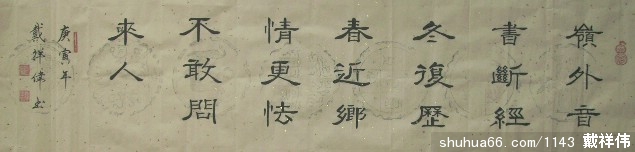 嶺外音
書斷經
冬復歷
春近鄉
情更怯
不敢問
來人
庚寅年
戴祥偉书
shuhua66.com/1143 戴祥伟